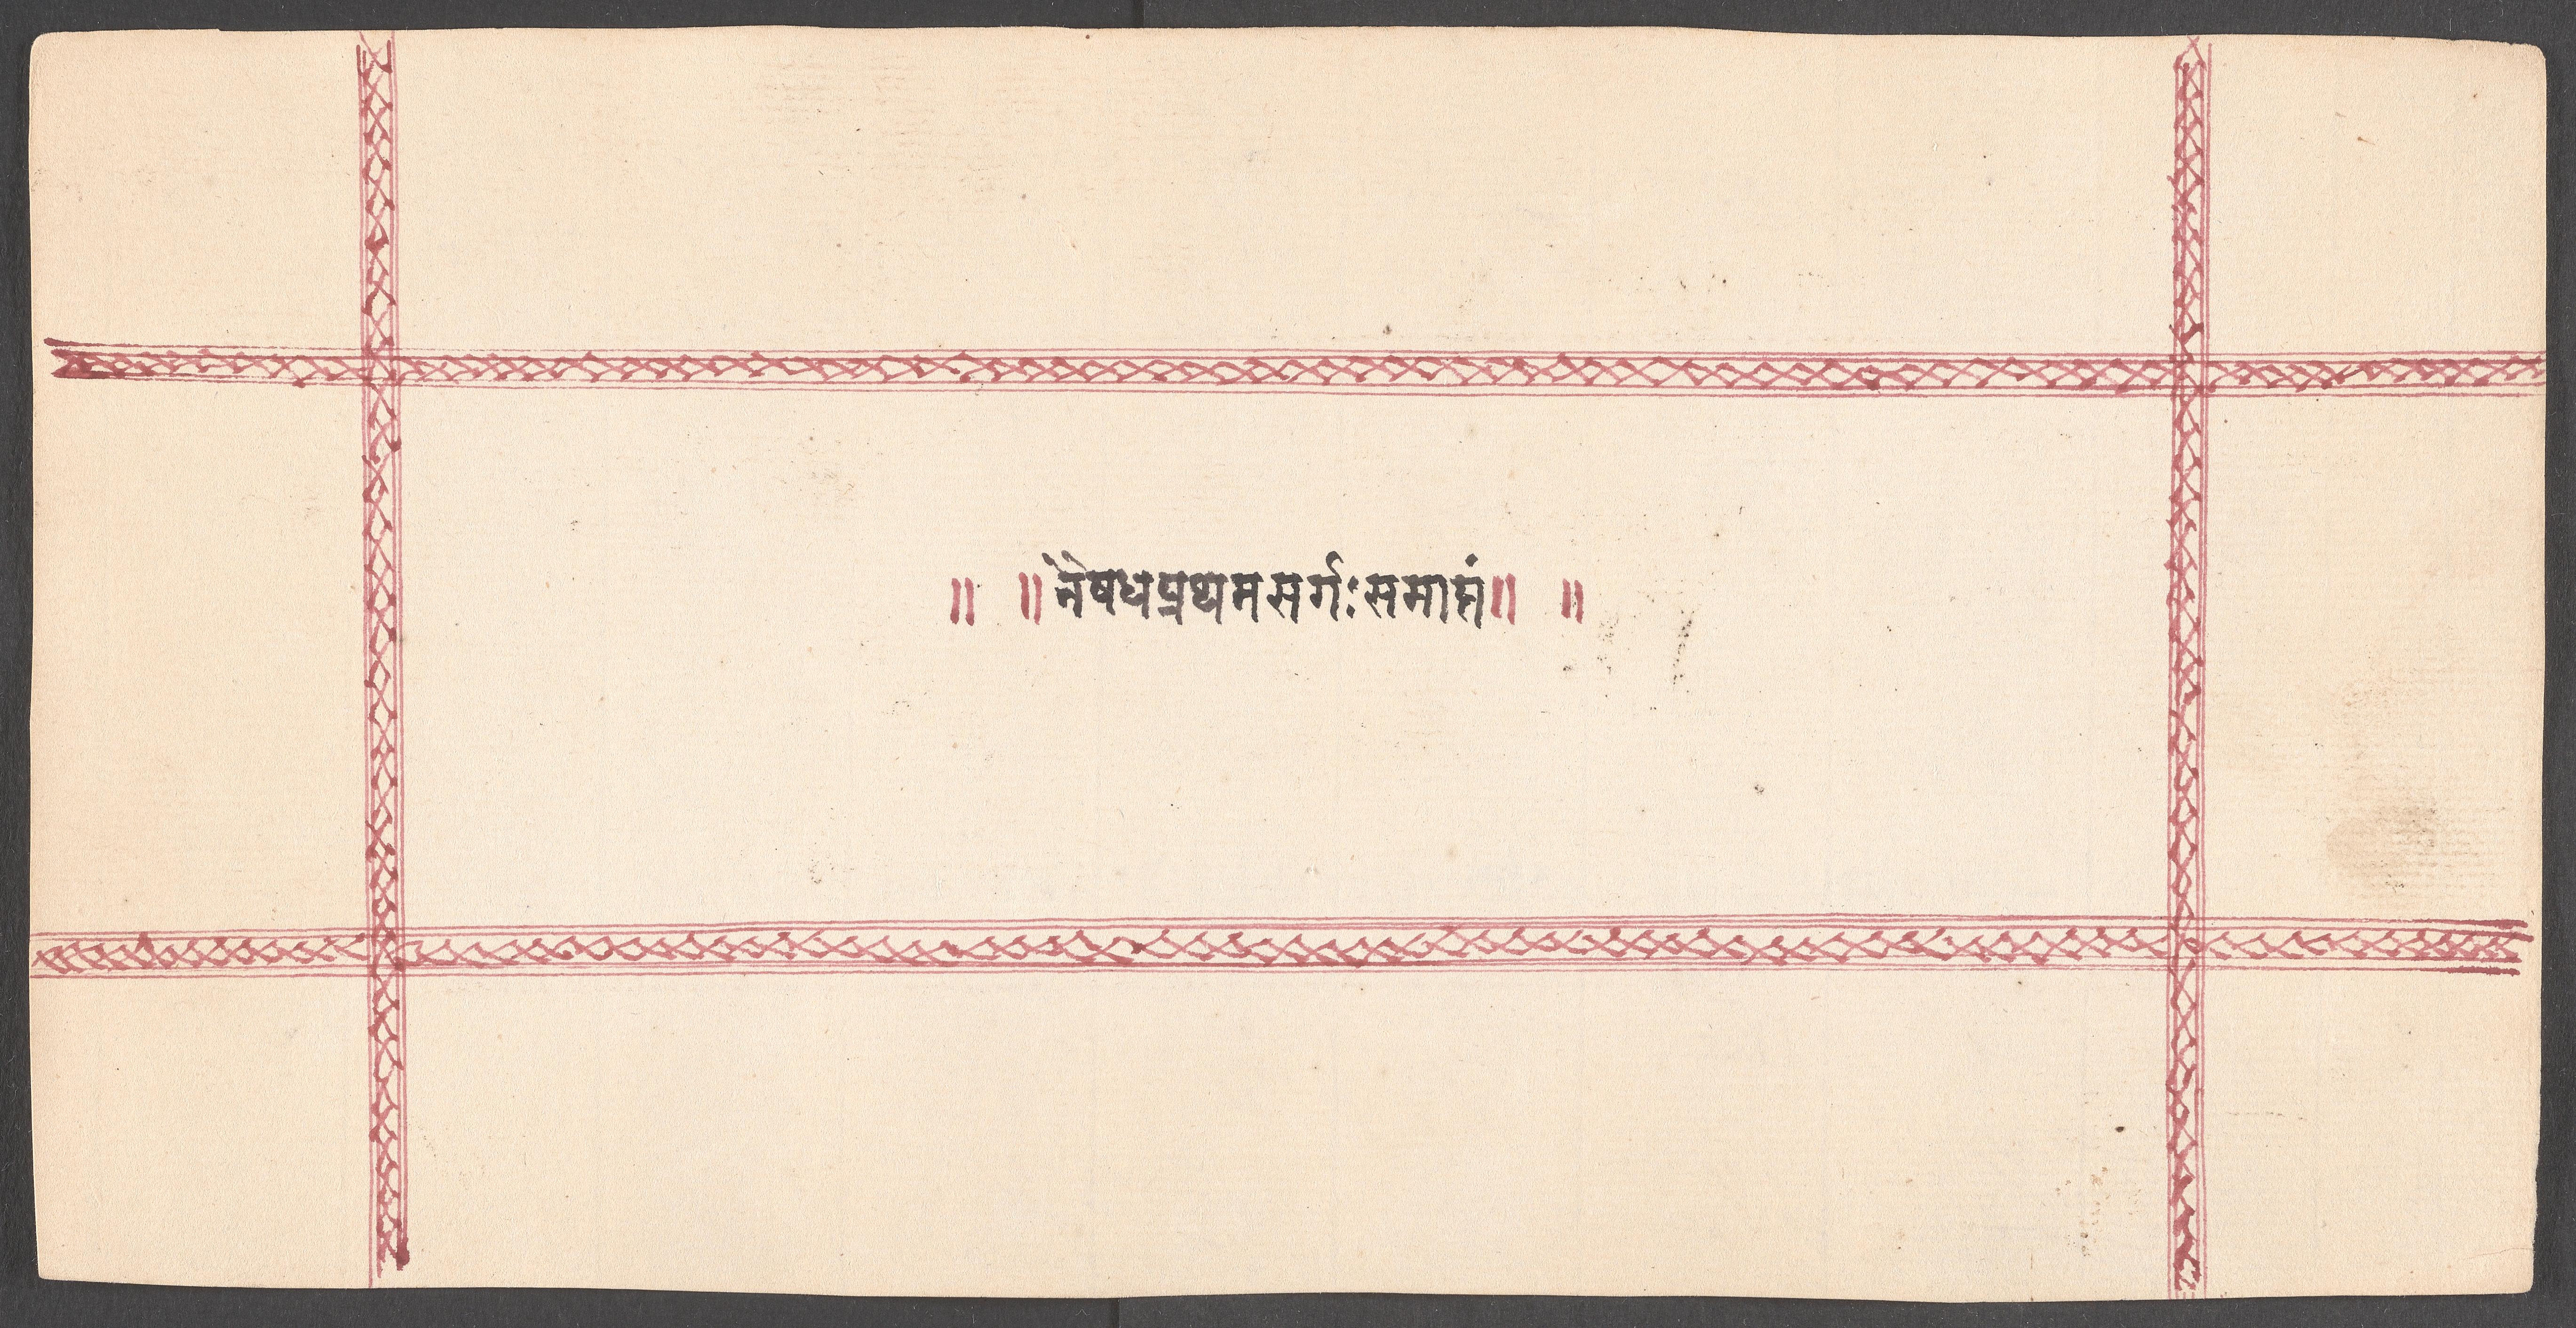 ॥ ॥ नैषधप्रथमसर्गः समाप्तं ॥ ॥